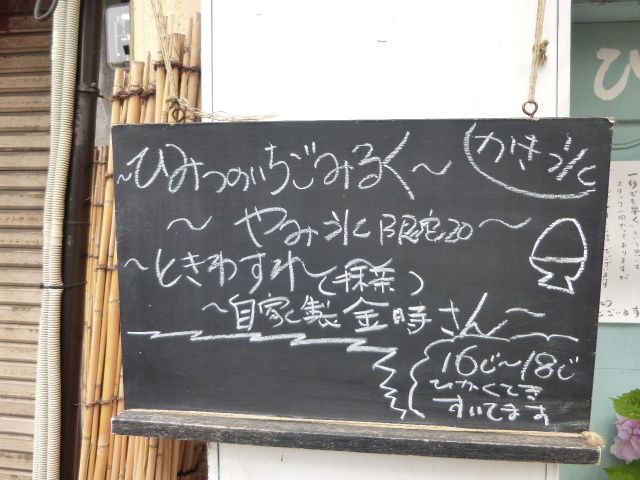 かき氷
～ひみつのいちごみるく～
～やみ氷限定20～
～ときわすれ(抹茶)
～自家製金時さん～
16じ～18じ
ひかくてき
すいてます
ひ